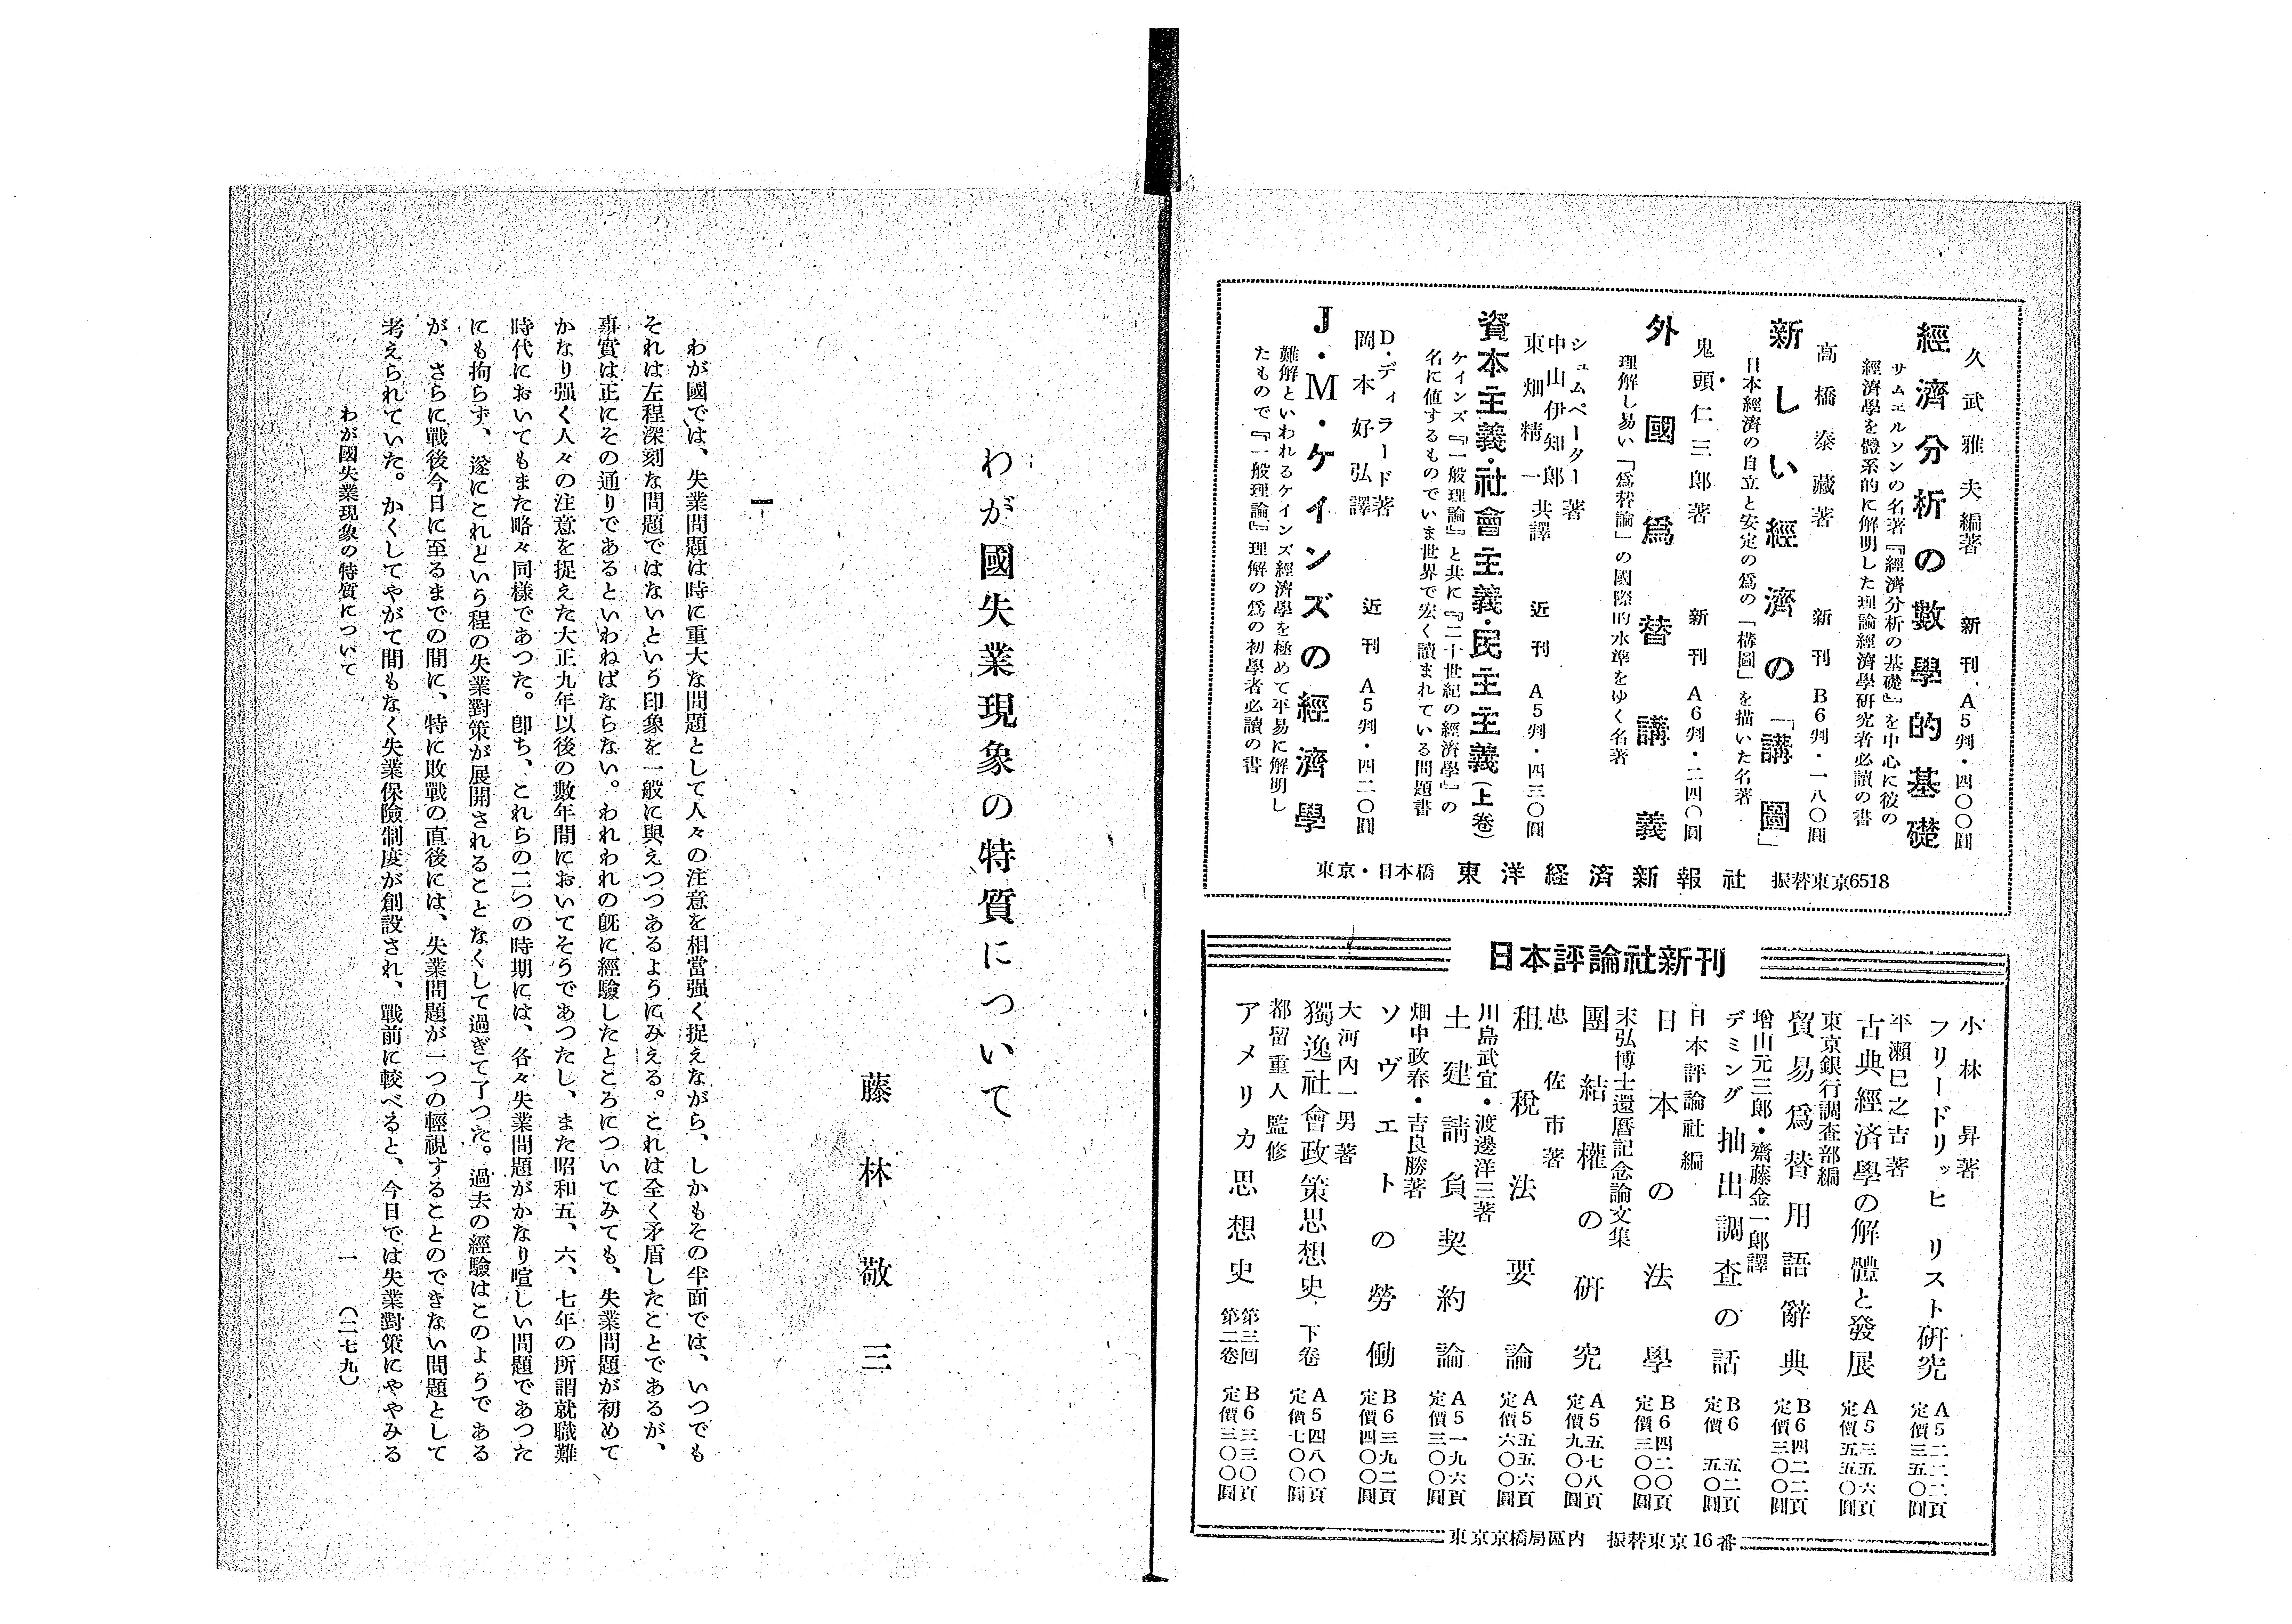 久武雅夫編著
經濟分析の數學的基礎
新刊 A5判・四〇〇圓
サムエルソンの名著『經濟分析の基礎』を中心に彼の
經濟學を體系的に解明した理論經濟學研究者必讀の書
高橋泰藏著
新しい經濟の「講圖」
新刊 B6判・一八〇圓
日本經濟の自立と安定の爲の「構圖」を描いた名著
鬼頭仁三郎著
外國爲替講義
新刊 A6判・二四〇圓
理解し易い「爲替論」の國際的水準をゆく名著
シュムペーター著
中山伊知郎
東畑精一共譯
資本主義・社會主義・民主主義(上卷)
近刊 A5判・四三〇圓
ケインズ『一般理論』と共に『二十世紀の經濟學』の
名に値するものでいま世界で宏く讀まれている問題書
D・ディラード著
岡本好弘譯
J・M・ケインズの經濟學
近刊 A5判・四二〇圓
難解といわれるケインズ經濟學を極めて平易に解明し
たもので『一般理論』理解の爲の初學者必讀の書
東京・日本橋 東洋経済新報社 振替東京6518
日本評論社新刊
小林昇著
フリードリッヒ リスト研究
A5二二二頁
定價三五〇圓
平瀬巳之吉著
古典經濟學の解體と發展
A5三五六頁
定價五五〇圓
東京銀行調査部編
貿易爲替用語辭典
B6四二二頁
定價三〇〇圓
増山元三郎・齋藤金一郎譯
デミング 抽出調査の話
B6 五二頁
定價 五〇圓
日本評論社編
日本の法學
B6四二〇頁
定價三〇〇圓
末弘博士還暦記念論文集
團結權の研究
A5五七八頁
定價九〇〇圓
忠佐市著
租稅法要論
A5五五六頁
定價六〇〇圓
川島武宜・渡邊洋三著
土建請負契約論
A5一九六頁
定價三〇〇圓
畑中政春・吉良勝著
ソヴエトの勞働
B6三九二頁
定價四〇〇圓
大河内一男著
獨逸社會政策思想史 下卷
A5四八〇頁
定價七〇〇圓
都留重人監修
アメリカ思想史 第三回
第二卷
B6三三〇頁
定價三〇〇圓
東京京橋局區内 振替東京16番
わが國失業現象の特質について
藤林敬三
一
わが國では、失業問題は時に重大な問題として人々の注意を相當强く捉えながら、しかもその半面では、いつでも
それは左程深刻な問題ではないという印象を一般に與えつつあるようにみえる。これは全く矛盾したことであるが、
事實は正にその通りであるといわねばならない。われわれの既に經驗したところについてみても、失業問題が初めて
かなり强く人々の注意を捉えた大正九年以後の數年間においてそうであつたし、また昭和五、六、七年の所謂就職難
時代においてもまた略々同様であつた。卽ち、これらの二つの時期には、各々失業問題がかなり喧しい問題であつた
にも拘らず、遂にこれという程の失業對策が展開されることなくして過ぎて了つた。過去の經驗はこのようである
が、さらに戰後今日に至るまでの間に、特に敗戰の直後には、失業問題が一つの輕視することのできない問題として
考えられていた。かくしてやがて間もなく失業保險制度が創設され、戰前に較べると、今日では失業對策にややみる
わが國失業現象の特質について
一 (二七九)